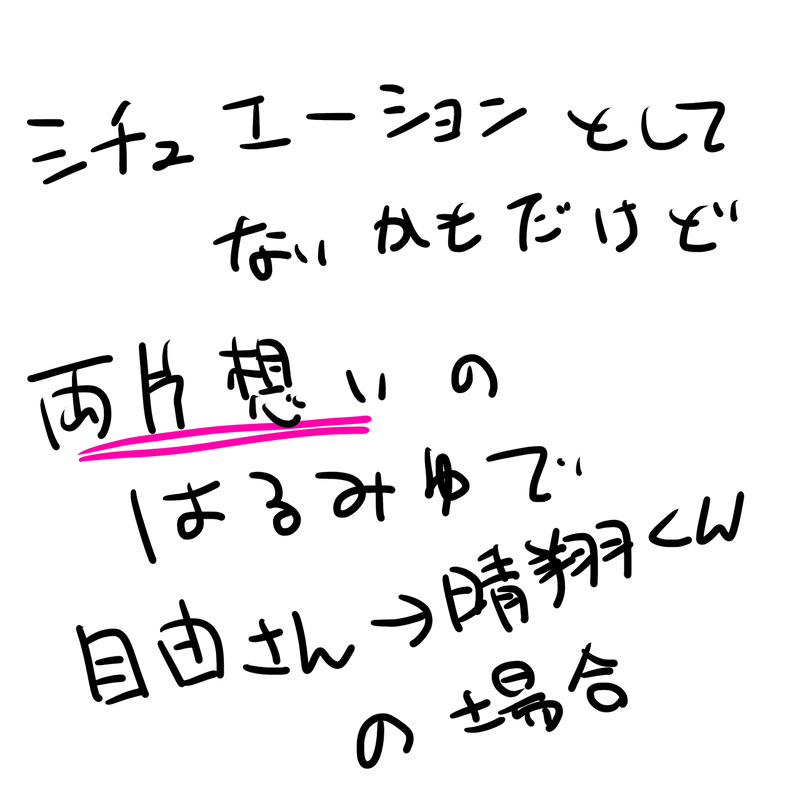 シチュエーションとして
ないかもだけど
両片想いの
はるみゆで
自由さん→晴翔くん
の場合